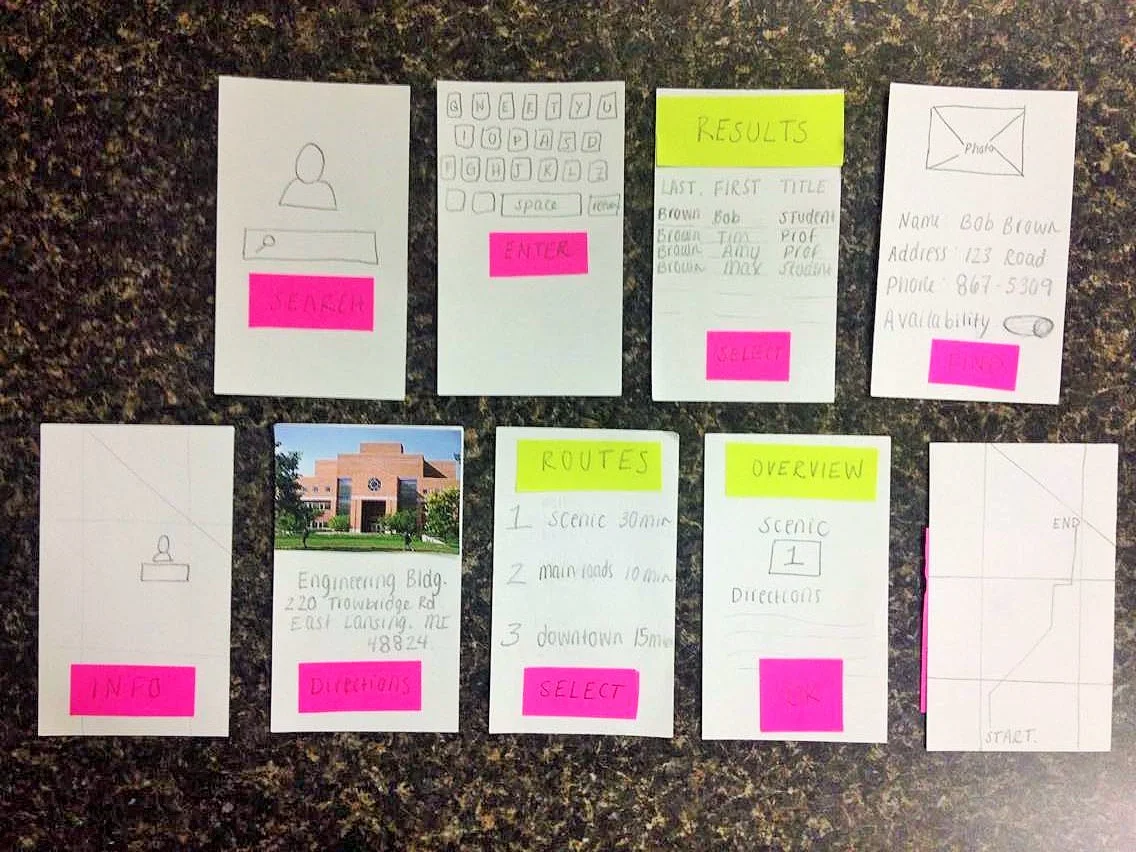 SEARCH
Q W E R T Y U
I O P A S D
F G H J K L Z
space return
ENTER
RESULTS
LAST, FIRST TITLE
Brown Bob Student
Brown Tim Prof
Brown Amy Prof
Brown Max Student
SELECT
Photo
Name Bob Brown
Address: 123 Road
Phone: 867-5309
Availability
FIND
INFO
Engineering Bldg.
220 Trowbridge Rd
East Lansing, MI
48824
Directions
ROUTES
1 scenic 30min
2 main roads 10 min
3 downtown 15min
SELECT
OVERVIEW
Scenic
1
Directions
OK
END
START.